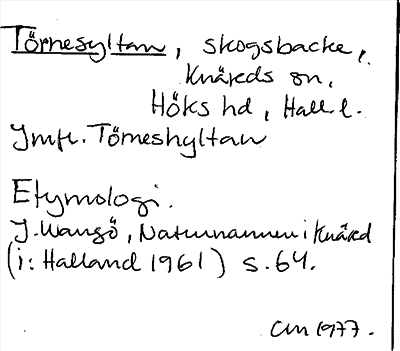 Törnesyltan, skogsbacke,
Knäreds sn,
Höks hd, Hall. l.
Jmfr. Törneshyltan
Etymologi.
J. Wangö, Naturnamnen i Knäred
(i: Halland 1961) s. 64.
CM 1977.